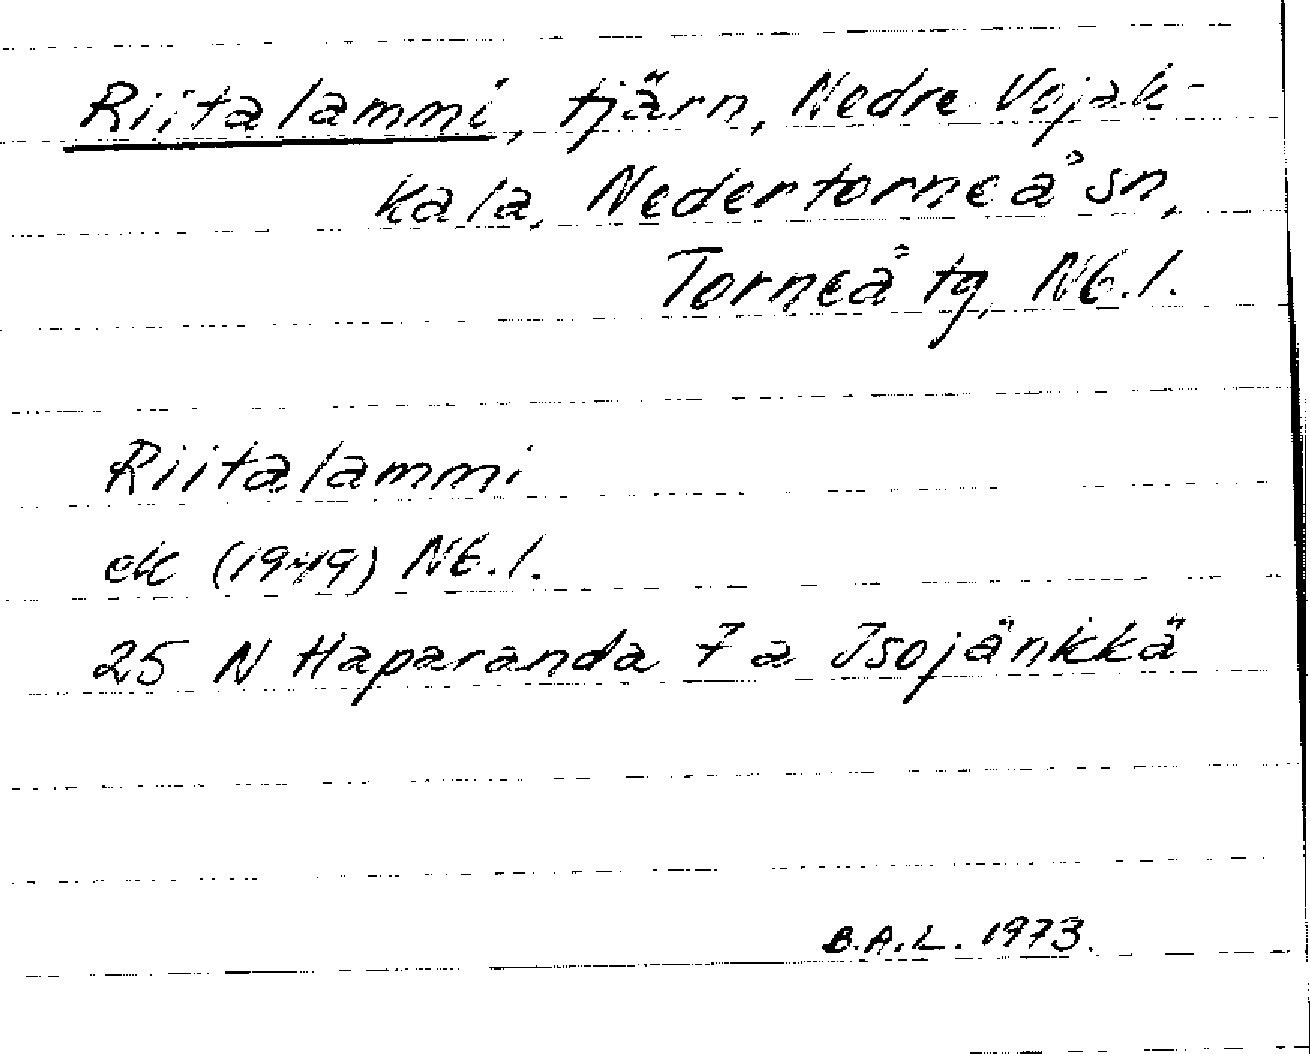 Riitalammi, tjärn, Nedre Vojak-
kala, Nedertorneå sn,
Torneå tg, Nb.l.
Riitalammi
ek (1949) Nb.l.
25 N Haparanda 7 a Isojänkkä
B.A.L. 1973.